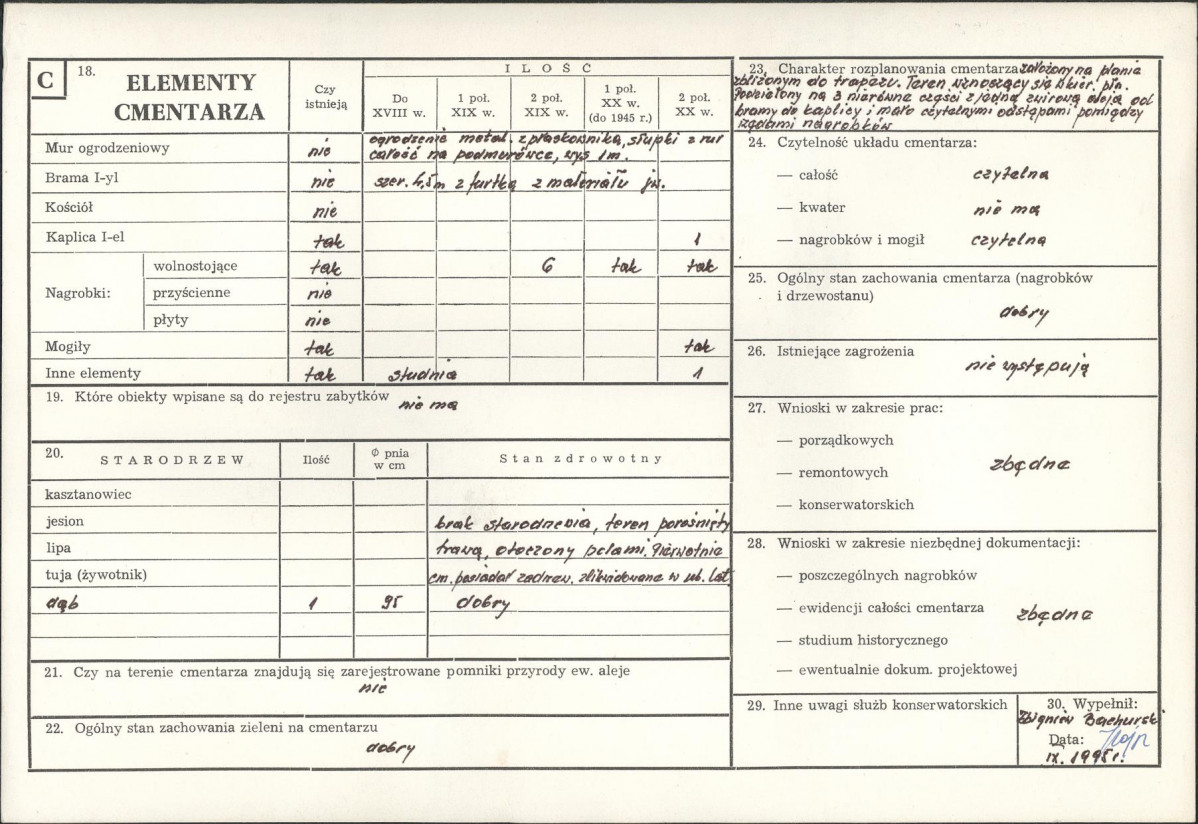 C
18. ELEMENTY CMENTARZA
Czy istnieją
ILOŚĆ
Do XVIII w.
1 poł. XIX w.
2 poł. XIX w.
1 poł. XX w. (do 1945 r.)
2 poł. XX w.
Mur ogrodzeniowy nie ogrodzenie metal. z płaskownika, słupki z rur
całość na podmurówce, wys 1m.
Brama I-yl nie szer. 4,5m z furtką z materiału jw.
Kościół nie
Kaplica I-el tak 1
Nagrobki:
wolnostojące tak 6 tak tak
przyścienne nie
płyty nie
Mogiły tak tak
Inne elementy tak studnia 1
19. Które obiekty wpisane są do rejestru zabytków nie ma
20. STARODRZEW
Ilość
Ø pnia w cm
Stan zdrowotny
kasztanowiec
jesion brak starodrzewia, teren porośnięty
lipa trawą, otoczony polami. Pierwotnie
tuja (żywotnik) cm. posiadał zadrzew. zlikwidowane w ub. lat
dąb 1 95 dobry
21. Czy na terenie cmentarza znajdują się zarejestrowane pomniki przyrody ew. aleje
nie
22. Ogólny stan zachowania zieleni na cmentarzu
dobry
23. Charakter rozplanowania cmentarza założony na planie
zbliżonym do trapezu. Teren wznoszący się w kier. płn.
Podzielony na 3 nierówne części z jedną żwirową aleją od
bramy do kaplicy i mało czytelnymi odstępami pomiędzy
rzędami nagrobków
24. Czytelność układu cmentarza:
— całość czytelna
— kwater nie ma
— nagrobków i mogił czytelna
25. Ogólny stan zachowania cmentarza (nagrobków
i drzewostanu)
dobry
26. Istniejące zagrożenia
nie występują
27. Wnioski w zakresie prac:
— porządkowych
— remontowych zbędne
— konserwatorskich
28. Wnioski w zakresie niezbędnej dokumentacji:
— poszczególnych nagrobków
— ewidencji całości cmentarza zbędne
— studium historycznego
— ewentualnie dokum. projektowej
29. Inne uwagi służb konserwatorskich
30. Wypełnił:
Zbigniew Bachurski
Data:
IX. 1995 r.